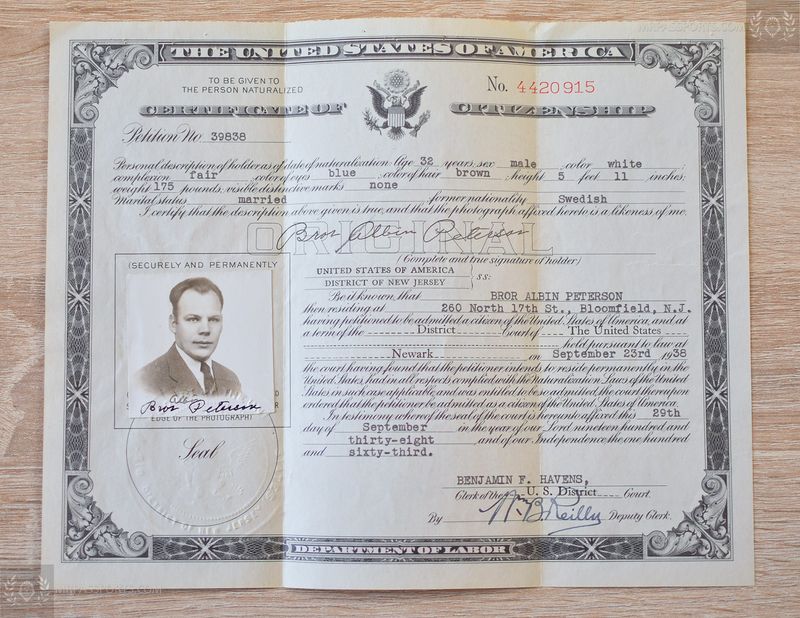 THE UNITED STATES OF AMERICA
TO BE GIVEN TO
THE PERSON NATURALIZED
No. 4420915
CERTIFICATE OF CITIZENSHIP
Petition No 39838
Personal description of holder as of date of naturalization: Age 32 years, sex male color white
complexion fair color of eyes blue color of hair brown height 5 feet 11 inches;
weight 175 pounds, visible distinctive marks none
Marital status married former nationality Swedish
I certify that the description above given is true, and that the photograph affixed hereto is a likeness of me.
ORIGINAL
Bror Albin Peterson
(Complete and true signature of holder)
(SECURELY AND PERMANENTLY
Albin
Bror Peterson
EDGE OF THE PHOTOGRAPH)
Seal
UNITED STATES OF AMERICA
DISTRICT OF NEW JERSEY
ss:
Be it known, that BROR ALBIN PETERSON
then residing at 260 North 17th St., Bloomfield, N.J.
having petitioned to be admitted a citizen of the United States of America, and at
a term of the District Court of The United States
held pursuant to law at
Newark on September 23rd 1938
the court having found that the petitioner intends to reside permanently in the
United States, had in all respects complied with the Naturalization Laws of the United
States in such case applicable, and was entitled to be so admitted, the court thereupon
ordered that the petitioner be admitted as a citizen of the United States of America.
In testimony whereof the seal of the court is hereunto affixed this 29th
day of September in the year of our Lord nineteen hundred and
thirty-eight and of our Independence the one hundred
and sixty-third.
BENJAMIN F. HAVENS,
Clerk of the U. S. District Court.
By Wm B. Reilly Deputy Clerk.
DEPARTMENT OF LABOR